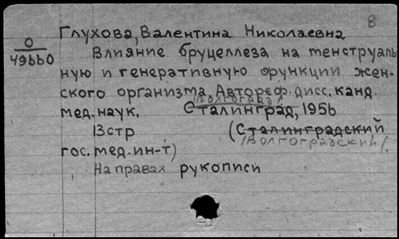 8
Глухова, Валентина Николаевна
О
49660
Влияние бруцеллеза на менструаль
ную и генеративную функции жен-
ского организма. Автореф. дисс. канд.
Волгоград/
мед. наук. Сталинград, 1956
13стр (Сталинградский
/Волгоградский/
гос. мед. ин-т)
На правах рукописи